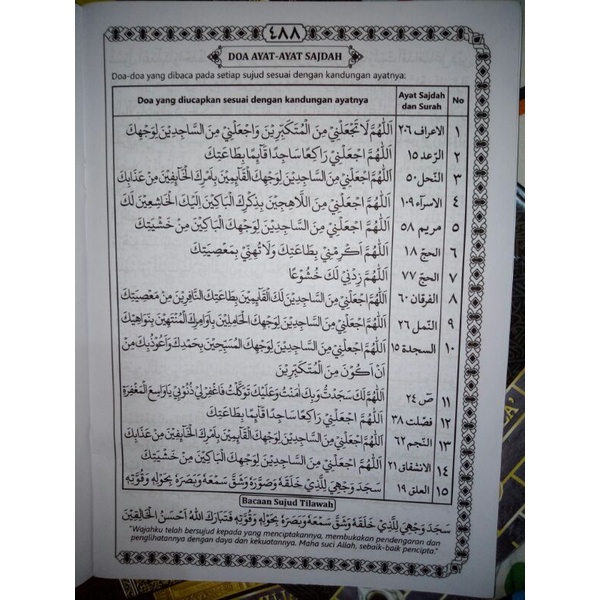 ٤٨٨
DOA AYAT-AYAT SAJDAH
Doa-doa yang dibaca pada setiap sujud sesuai dengan kandungan ayatnya:
No | Ayat Sajdah dan Surah | Doa yang diucapkan sesuai dengan kandungan ayatnya
١ | الاعراف ٢٠٦ | اَللّٰهُمَّ لَا تَجْعَلْنِيْ مِنَ الْمُتَكَبِّرِيْنَ وَاجْعَلْنِيْ مِنَ السَّاجِدِيْنَ لِوَجْهِكَ
٢ | الرّعد ١٥ | اَللّٰهُمَّ اجْعَلْنِيْ رَاكِعًا سَاجِدًا قَآئِمًا بِطَاعَتِكَ
٣ | النّحل ٥٠ | اَللّٰهُمَّ اجْعَلْنِيْ مِنَ السَّاجِدِيْنَ لِوَجْهِكَ الْقَآئِمِيْنَ بِاَمْرِكَ الْخَآئِفِيْنَ مِنْ عَذَابِكَ
٤ | الاسرآء ١٠٩ | اَللّٰهُمَّ اجْعَلْنِيْ مِنَ اللَّاهِجِيْنَ بِذِكْرِكَ الْبَاكِيْنَ اِلَيْكَ الْخَاشِعِيْنَ لَكَ
٥ | مريم ٥٨ | اَللّٰهُمَّ اجْعَلْنِيْ مِنَ السَّاجِدِيْنَ لِوَجْهِكَ الْبَاكِيْنَ مِنْ خَشْيَتِكَ
٦ | الحجّ ١٨ | اَللّٰهُمَّ اَكْرِمْنِيْ بِطَاعَتِكَ وَلَا تُهِنِّيْ بِمَعْصِيَتِكَ
٧ | الحجّ ٧٧ | اَللّٰهُمَّ زِدْنِيْ لَكَ خُشُوْعًا
٨ | الفرقان ٦٠ | اَللّٰهُمَّ اجْعَلْنِيْ مِنَ السَّاجِدِيْنَ لَكَ الْقَآئِمِيْنَ بِطَاعَتِكَ النَّافِرِيْنَ مِنْ مَعْصِيَتِكَ
٩ | النّمل ٢٦ | اَللّٰهُمَّ اجْعَلْنِيْ مِنَ السَّاجِدِيْنَ لِوَجْهِكَ الْحَامِلِيْنَ بِاَوَامِرِكَ الْمُنْتَهِيْنَ بِنَوَاهِيْكَ
١٠ | السجدة ١٥ | اَللّٰهُمَّ اجْعَلْنِيْ مِنَ السَّاجِدِيْنَ لِوَجْهِكَ الْمُسَبِّحِيْنَ بِحَمْدِكَ وَاَعُوْذُ بِكَ مِنْ
اَنْ اَكُوْنَ مِنَ الْمُتَكَبِّرِيْنَ
١١ | صٓ ٢٤ | اَللّٰهُمَّ لَكَ سَجَدْتُ وَبِكَ اٰمَنْتُ وَعَلَيْكَ تَوَكَّلْتُ فَاغْفِرْلِيْ ذُنُوْبِيْ يَاوَاسِعَ الْمَغْفِرَةِ
١٢ | فصّلت ٣٨ | اَللّٰهُمَّ اجْعَلْنِيْ رَاكِعًا سَاجِدًا قَآئِمًا بِطَاعَتِكَ
١٣ | النّجم ٦٢ | اَللّٰهُمَّ اجْعَلْنِيْ مِنَ السَّاجِدِيْنَ لِوَجْهِكَ الْقَآئِمِيْنَ بِاَمْرِكَ الْخَآئِفِيْنَ مِنْ عَذَابِكَ
١٤ | الانشقاق ٢١ | اَللّٰهُمَّ اجْعَلْنِيْ مِنَ السَّاجِدِيْنَ لِوَجْهِكَ الْبَاكِيْنَ مِنْ خَشْيَتِكَ
١٥ | العلق ١٩ | سَجَدَ وَجْهِيَ لِلَّذِيْ خَلَقَهُ وَصَوَّرَهُ وَشَقَّ سَمْعَهُ وَبَصَرَهُ بِحَوْلِهِ وَقُوَّتِهِ
Bacaan Sujud Tilawah
سَجَدَ وَجْهِيَ لِلَّذِيْ خَلَقَهُ وَشَقَّ سَمْعَهُ وَبَصَرَهُ بِحَوْلِهِ وَقُوَّتِهِ فَتَبَارَكَ اللّٰهُ اَحْسَنُ الْخَالِقِيْنَ
"Wajahku telah bersujud kepada yang menciptakannya, membukakan pendengaran dan
penglihatannya dengan daya dan kekuatannya. Maha suci Allah, sebaik-baik pencipta."